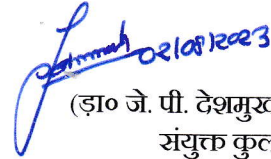 02/08/2023
(ड़ा० जे. पी. देशमुख
संयुक्त कुल